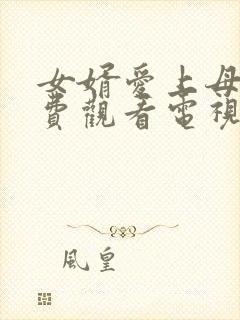 女婿愛上母
費觀看電視
風皇